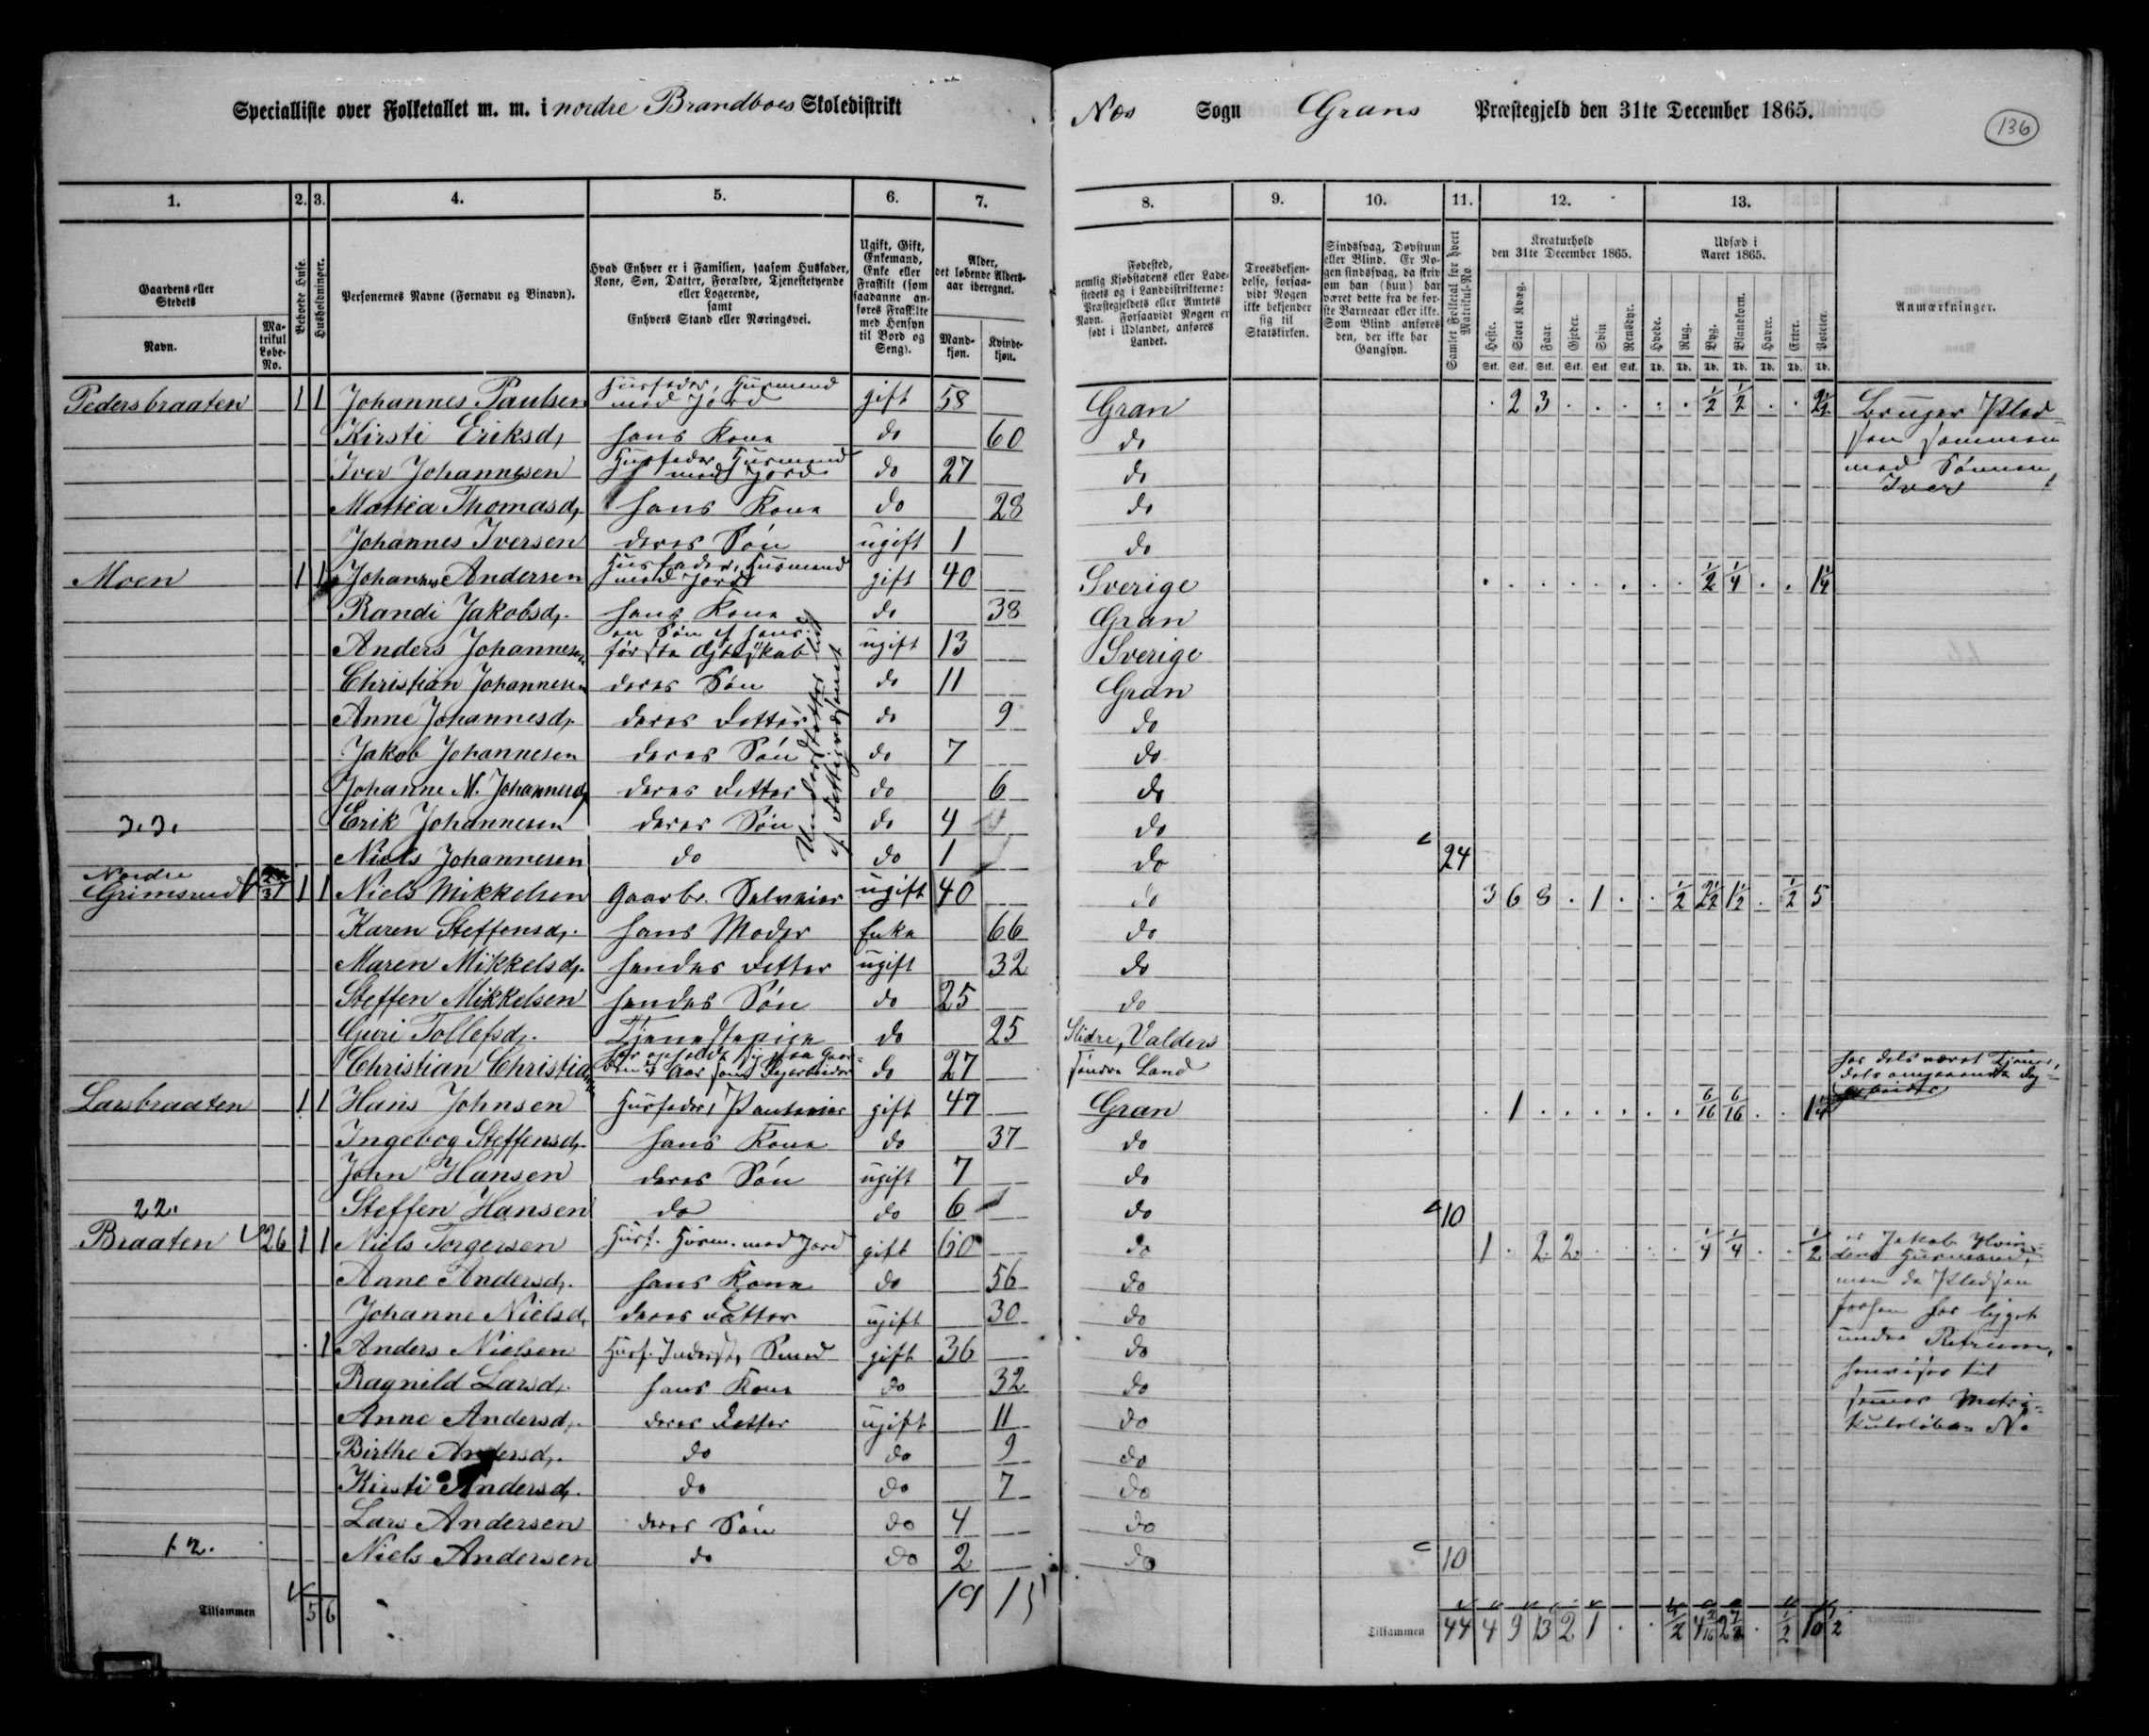 Specialliste over Folketallet m. m. i nordre Brandboes Skoledistrikt
Næs Sogn Grans Præstegjeld den 31te December 1865.
136
1. 2. 3. 4. 5. 6. 7. 8. 9. 10. 11. 12. 13.
Gaardens eller Stedets
Navn.
Matrikul Løbe-No.
Beboede Huse.
Husholdninger.
Personernes Navne (Fornavn og Binavn).
Hvad Enhver er i Familien, saasom Husfader, Kone, Søn, Datter, Forældre, Tjenestetyende eller Logerende, samt Enhvers Stand eller Næringsvei.
Ugift, Gift, Enkemand, Enke eller Fraskilt (som saadanne anføres Fraskilte med Hensyn til Bord og Seng).
Alder, det løbende Aldersaar iberegnet.
Mandkjøn. Kvindekjøn.
Fødested, nemlig Kjøbstadens eller Ladestedets og i Landdistrikterne: Præstegjeldets eller Amtets Navn. Forsaavidt Nogen er født i Udlandet, anføres Landet.
Troesbekjendelse, forsaavidt Nogen ikke bekjender sig til Statskirken.
Sindssvag, Døvstum eller Blind. Er Nogen sindssvag, da skriv om han (hun) har været dette fra de første Barneaar eller ikke. Som Blind anføres den, der ikke har Gangsyn.
Samlet Folketal for hvert Matrikul-No
Kreaturhold den 31te December 1865.
Heste. Stort Kvæg. Faar. Gjeder. Svin Rensdyr.
Udsæd i Aaret 1865.
Hvede. Rug. Byg. Blandkorn. Havre. Erter. Poteter.
Anmærkninger.
Stk. Stk. Stk. Stk. Stk. Stk. Td. Td. Td. Td. Td. Td. Td.
Pedersbraaten 1 1 Johannes Paulsen Husfader, Husmand med Jord gift 58 Gran . 2 3 . . . . . 1/2 1/2 . . 2 1/2 Bruger Pladsen sammen med Sønnen Iver
Kirsti Eriksd, hans Kone do 60 do
Iver Johannesen Husfader Husmand med Jord do 27 do
Mattea Thomasd, hans Kone do 28 do
Johannes Iversen deres Søn ugift 1 do
Moen 1 1 Johannes Andersen Husfader, Husmand med Jord gift 40 Sverige . . . . . . . . 1/2 1/4 . . 1 1/4
Randi Jakobsd, hans Kone do 38 Gran
Anders Johannesen en Søn af hans første Ægteskab ugift 13 Sverige
Christian Johannesen deres Søn do 11 Gran
Anne Johannesd, deres Datter do 9 do
Jakob Johannesen deres Søn do 7 do
Johanne M. Johannesd, deres Datter do 6 do
3.3. Erik Johannesen deres Søn do 4 do
Understøttes af Fattigvæsenet
Niels Johannesen do do 1 do 24
Nordre
Grimsrud 31 1 1 Niels Mikkelsen Gaarbr. Selveier ugift 40 do 3 6 8 . 1 . . 1/2 2 1/2 1 1/2 . 1/2 5
Karen Steffensd, hans Moder Enke 66 do
Maren Mikkelsd, hendes Datter ugift 32 do
Steffen Mikkelsen hendes Søn do 25 do
Guri Tollefsd, Tjenestepige do 25 Slidre, Valders
Christian Christiansen do 27 søndre Land
Larsbraaten 1 1 Hans Johnsen Husfader, gift 47 Gran . 1 . . . . . . 6/16 6/16 . . 1 1/4
Ingebog Steffensd, hans Kone do 37 do
John Hansen deres Søn ugift 7 do
22. Steffen Hansen do do 6 do 10
Braaten 26 1 1 Niels Torgersen Husf. Husm. med Jord gift 60 do 1 . 2 2 . . . . 1/4 1/4 . . 1/2
Anne Andersd, hans Kone do 56 do
Johanne Nielsd, deres Datter ugift 30 do
. 1 Anders Nielsen Husf. Inderst, Smed gift 36 do
Ragnild Larsd, hans Kone do 32 do
Anne Andersd, deres Datter ugift 11 do
Birthe Andersd, do do 9 do
Kirsti Andersd, do do 7 do
Lars Andersen deres Søn do 4 do
12. Niels Andersen do do 2 do 10
Tilsammen 5 6 19 15
Tilsammen 44 4 9 13 2 1 . . 1/2 . 1/2